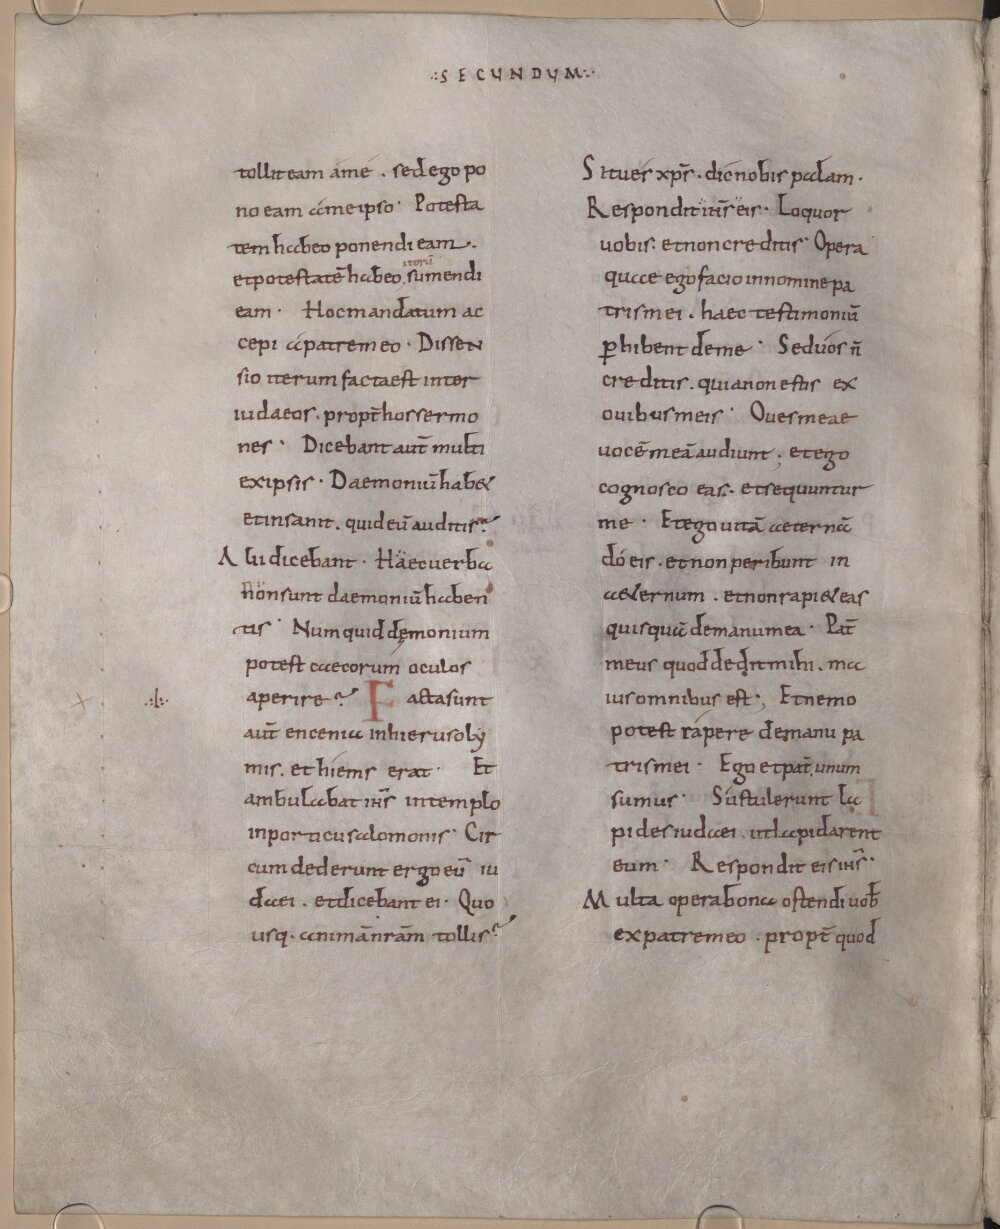 ·:SECUNDUM:·
tollit eam a me . sed ego po
no eam a me ipso · Potesta
tem habeo ponendi eam .
et potestatē habeo iterū sumendi
eam · Hoc mandatum ac
cepi a patre meo · Dissen
sio iterum facta est inter
iudaeos . propt̄ hos sermo
nes · Dicebant aut̄ multi
ex ipsis · Daemoniū habet
et insanit . quid eū auditis?
Alii dicebant · Haec uerba
non sunt daemoniū haben
tis · Numquid demonium
potest caecorum oculos
aperire? Facta sunt
aut̄ encenia in hierusoly
mis . et hiems erat · Et
ambulabat ih̄s in templo
in porticu salomonis · Cir
cumdederunt ergo eū iu
daei . et dicebant ei · Quo
usq · animā nrām tollis?
Si tu es xp̄s . dic nobis palam .
Respondit eis ih̄s · Loquor
uobis . et non creditis · Opera
quae ego facio in nomine pa
tris mei . haec testimoniū
p̄hibent de me · Sed uos n̄
creditis . quia non estis ex
ouibus meis · Oues meae
uocē meā audiunt ; et ego
cognosco eas . et sequuntur
me · Et ego uitā aeternā
do eis . et non peribunt in
aeternum . et non rapiet eas
quisquā de manu mea · Pat̄
meus quod dedit mihi . ma
ius omnibus est ; Et nemo
potest rapere de manu pa
tris mei · Ego et pat̄ unum
sumus · Sustulerunt la
pides iudaei . ut lapidarent
eum · Respondit eis ih̄s ·
Multa opera bona ostendi uob̄
ex patre meo . propt̄ quod